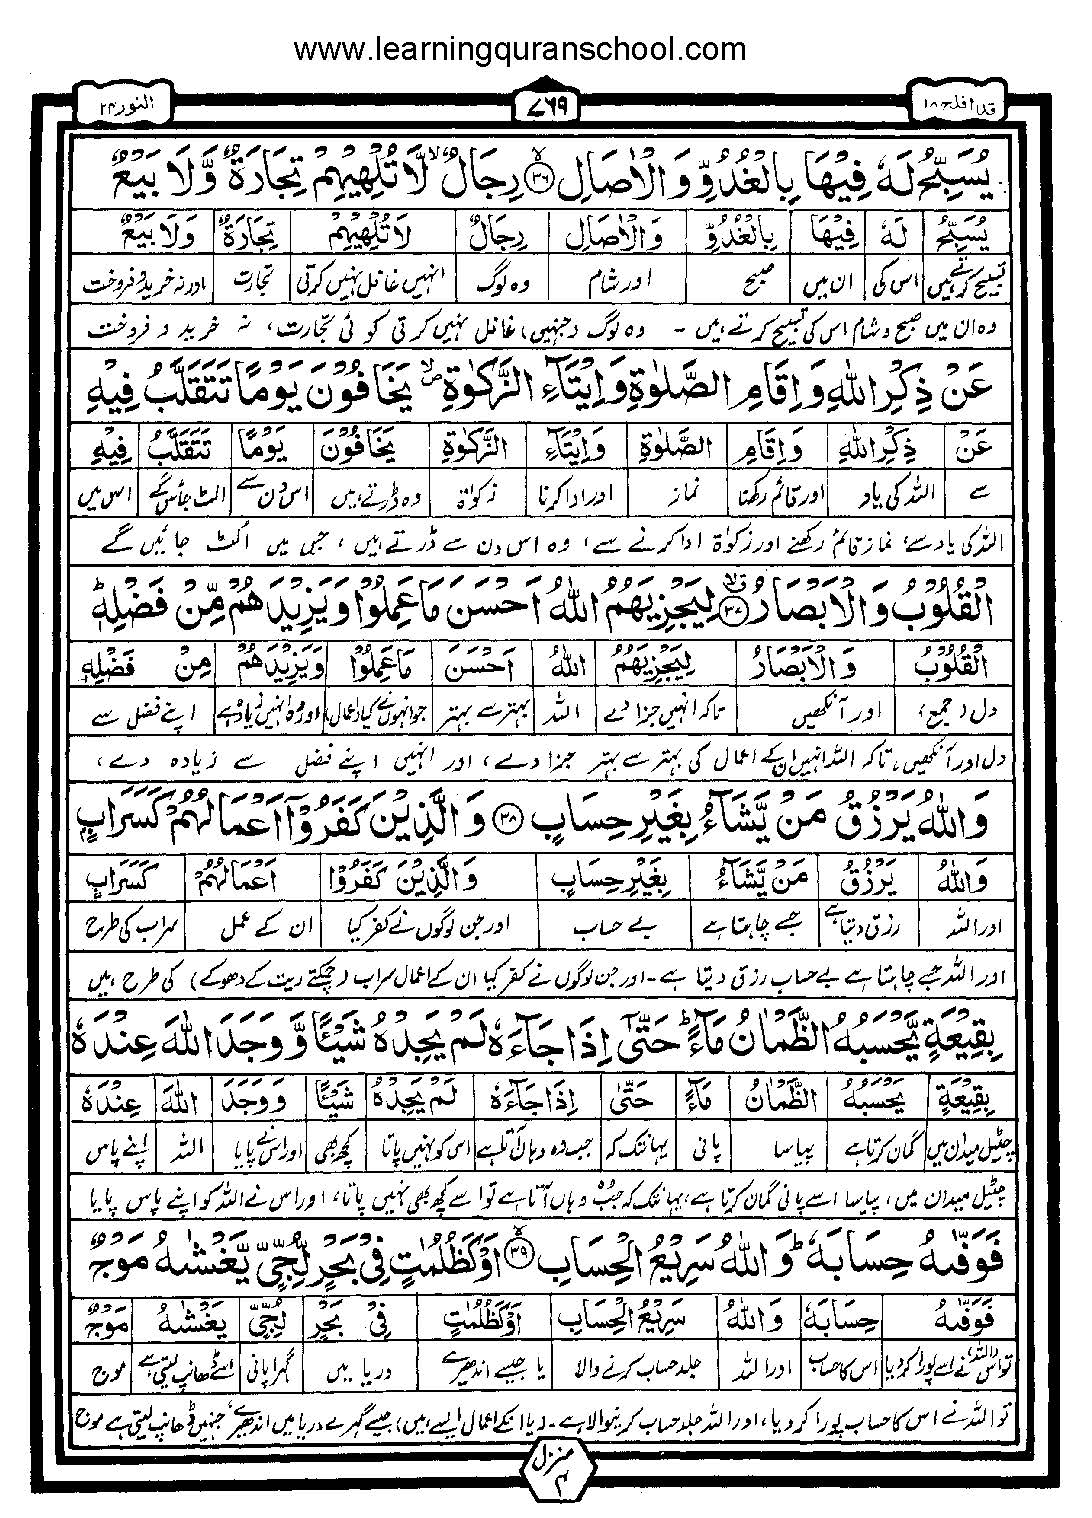 www.learningquranschool.com
النور ٢٤
٧٦٩
قد افلح ١٨
يُسَبِّحُ لَهٗ فِيْهَا بِالْغُدُوِّ وَالْاٰصَالِ ﴿٣٦﴾ رِجَالٌ لَّا تُلْهِيْهِمْ تِجَارَةٌ وَّلَا بَيْعٌ
يُسَبِّحُ لَهٗ فِيْهَا بِالْغُدُوِّ وَالْاٰصَالِ رِجَالٌ لَا تُلْهِيْهِمْ تِجَارَةٌ وَلَا بَيْعٌ
تسبیح کرتے ہیں اس کی ان میں صبح اور شام وہ لوگ انہیں غافل نہیں کرتی تجارت اور نہ خرید و فروخت
وہ ان میں صبح و شام اس کی تسبیح کرتے ہیں ۔ وہ لوگ (جنہیں) غافل نہیں کرتی کوئی تجارت، نہ خرید و فروخت
عَنْ ذِكْرِ اللّٰهِ وَاِقَامِ الصَّلٰوةِ وَاِيْتَآءِ الزَّكٰوةِ يَخَافُوْنَ يَوْمًا تَتَقَلَّبُ فِيْهِ
عَنْ ذِكْرِ اللّٰهِ وَاِقَامِ الصَّلٰوةِ وَاِيْتَآءِ الزَّكٰوةِ يَخَافُوْنَ يَوْمًا تَتَقَلَّبُ فِيْهِ
سے اللہ کی یاد اور قائم رکھنا نماز اور ادا کرنا زکوٰۃ وہ ڈرتے ہیں اس دن سے الٹ جائیں گے اس میں
اللہ کی یاد سے، نماز قائم رکھنے اور زکوٰۃ ادا کرنے سے، وہ اس دن سے ڈرتے ہیں، جس میں الٹ جائیں گے
الْقُلُوْبُ وَالْاَبْصَارُ ﴿٣٧﴾ لِيَجْزِيَهُمُ اللّٰهُ اَحْسَنَ مَا عَمِلُوْا وَيَزِيْدَهُمْ مِّنْ فَضْلِهٖ ط
الْقُلُوْبُ وَالْاَبْصَارُ لِيَجْزِيَهُمُ اللّٰهُ اَحْسَنَ مَا عَمِلُوْا وَيَزِيْدَهُمْ مِنْ فَضْلِهٖ
دل (جمع) اور آنکھیں تاکہ انہیں جزا دے اللہ بہتر سے بہتر جو انہوں نے کیا (اعمال) اور وہ انہیں زیادہ دے اپنے فضل سے
دل اور آنکھیں، تاکہ اللہ انہیں ان کے اعمال کی بہتر سے بہتر جزا دے، اور انہیں اپنے فضل سے زیادہ دے،
وَاللّٰهُ يَرْزُقُ مَنْ يَّشَآءُ بِغَيْرِ حِسَابٍ ﴿٣٨﴾ وَالَّذِيْنَ كَفَرُوْٓا اَعْمَالُهُمْ كَسَرَابٍ
وَاللّٰهُ يَرْزُقُ مَنْ يَّشَآءُ بِغَيْرِ حِسَابٍ وَالَّذِيْنَ كَفَرُوْٓا اَعْمَالُهُمْ كَسَرَابٍ
اور اللہ رزق دیتا ہے جسے چاہتا ہے بے حساب اور جن لوگوں نے کفر کیا ان کے عمل سراب کی طرح
اور اللہ جسے چاہتا ہے بے حساب رزق دیتا ہے ۔ اور جن لوگوں نے کفر کیا ان کے اعمال سراب (چمکتے ریت کے دھوکے) کی طرح ہیں
بِقِيْعَةٍ يَّحْسَبُهُ الظَّمْاٰنُ مَآءً ط حَتّٰٓى اِذَا جَآءَهٗ لَمْ يَجِدْهُ شَيْئًا وَّوَجَدَ اللّٰهَ عِنْدَهٗ
بِقِيْعَةٍ يَحْسَبُهُ الظَّمْاٰنُ مَآءً حَتّٰى اِذَا جَآءَهٗ لَمْ يَجِدْهُ شَيْئًا وَوَجَدَ اللّٰهَ عِنْدَهٗ
چٹیل میدان میں گمان کرتا ہے پیاسا پانی یہانتک کہ جب وہ وہاں آتا ہے اس کو نہیں پاتا کچھ بھی اور اس نے پایا اللہ اپنے پاس
چٹیل میدان میں، پیاسا اسے پانی گمان کرتا ہے، یہانتک کہ جب وہاں آتا ہے تو اسے کچھ بھی نہیں پاتا، اور اس نے اللہ کو اپنے پاس پایا
فَوَفّٰىهُ حِسَابَهٗ ط وَاللّٰهُ سَرِيْعُ الْحِسَابِ ﴿٣٩﴾ اَوْ كَظُلُمٰتٍ فِيْ بَحْرٍ لُّجِّيٍّ يَّغْشٰىهُ مَوْجٌ
فَوَفّٰىهُ حِسَابَهٗ وَاللّٰهُ سَرِيْعُ الْحِسَابِ اَوْ كَظُلُمٰتٍ فِيْ بَحْرٍ لُجِّيٍّ يَغْشٰىهُ مَوْجٌ
تو اس (اللہ) نے اسے پورا کر دیا اس کا حساب اور اللہ جلد حساب کرنے والا یا جیسے اندھیرے دریا میں گہرا پانی اسے ڈھانپ لیتی ہے موج
تو اللہ نے اس کا حساب پورا کر دیا، اور اللہ جلد حساب کرنیوالا ہے ۔ (یا انکے اعمال ایسے ہیں) جیسے گہرے دریا میں اندھیرے، جنہیں ڈھانپ لیتی ہے موج
منزل ٤